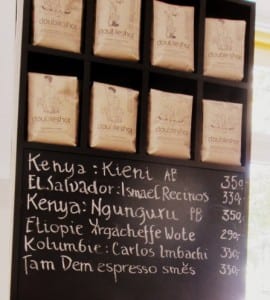 doubleshot
doubleshot
doubleshot
doubleshot
doubleshot
doubleshot
doubleshot
doubleshot
Kenya: Kieni AB 350,-
El Salvador: Ismael Recinos 330,-
Kenya: Ngunguru PB 350,-
Etiopie Yrgacheffe Wote 290,-
Kolumbie: Carlos Imbachi 330,-
Tam Dem espresso směs 330,-